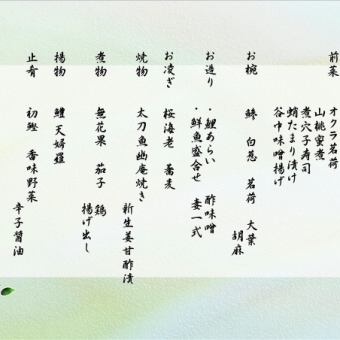 前菜
オクラ茗荷
山桃蜜煮
煮穴子寿司
蛸たまり漬け
谷中味噌揚げ
お椀
鯵 白葱 茗荷 大葉
胡麻
お造り
・鯉あらい 酢味噌
・鮮魚盛合せ 妻一式
お凌ぎ
桜海老 蕎麦
焼物
太刀魚幽庵焼き
新生姜甘酢漬
煮物
無花果 茄子 鶏
揚げ出し
揚物
鱧天婦羅
止肴
初鰹 香味野菜
辛子醤油